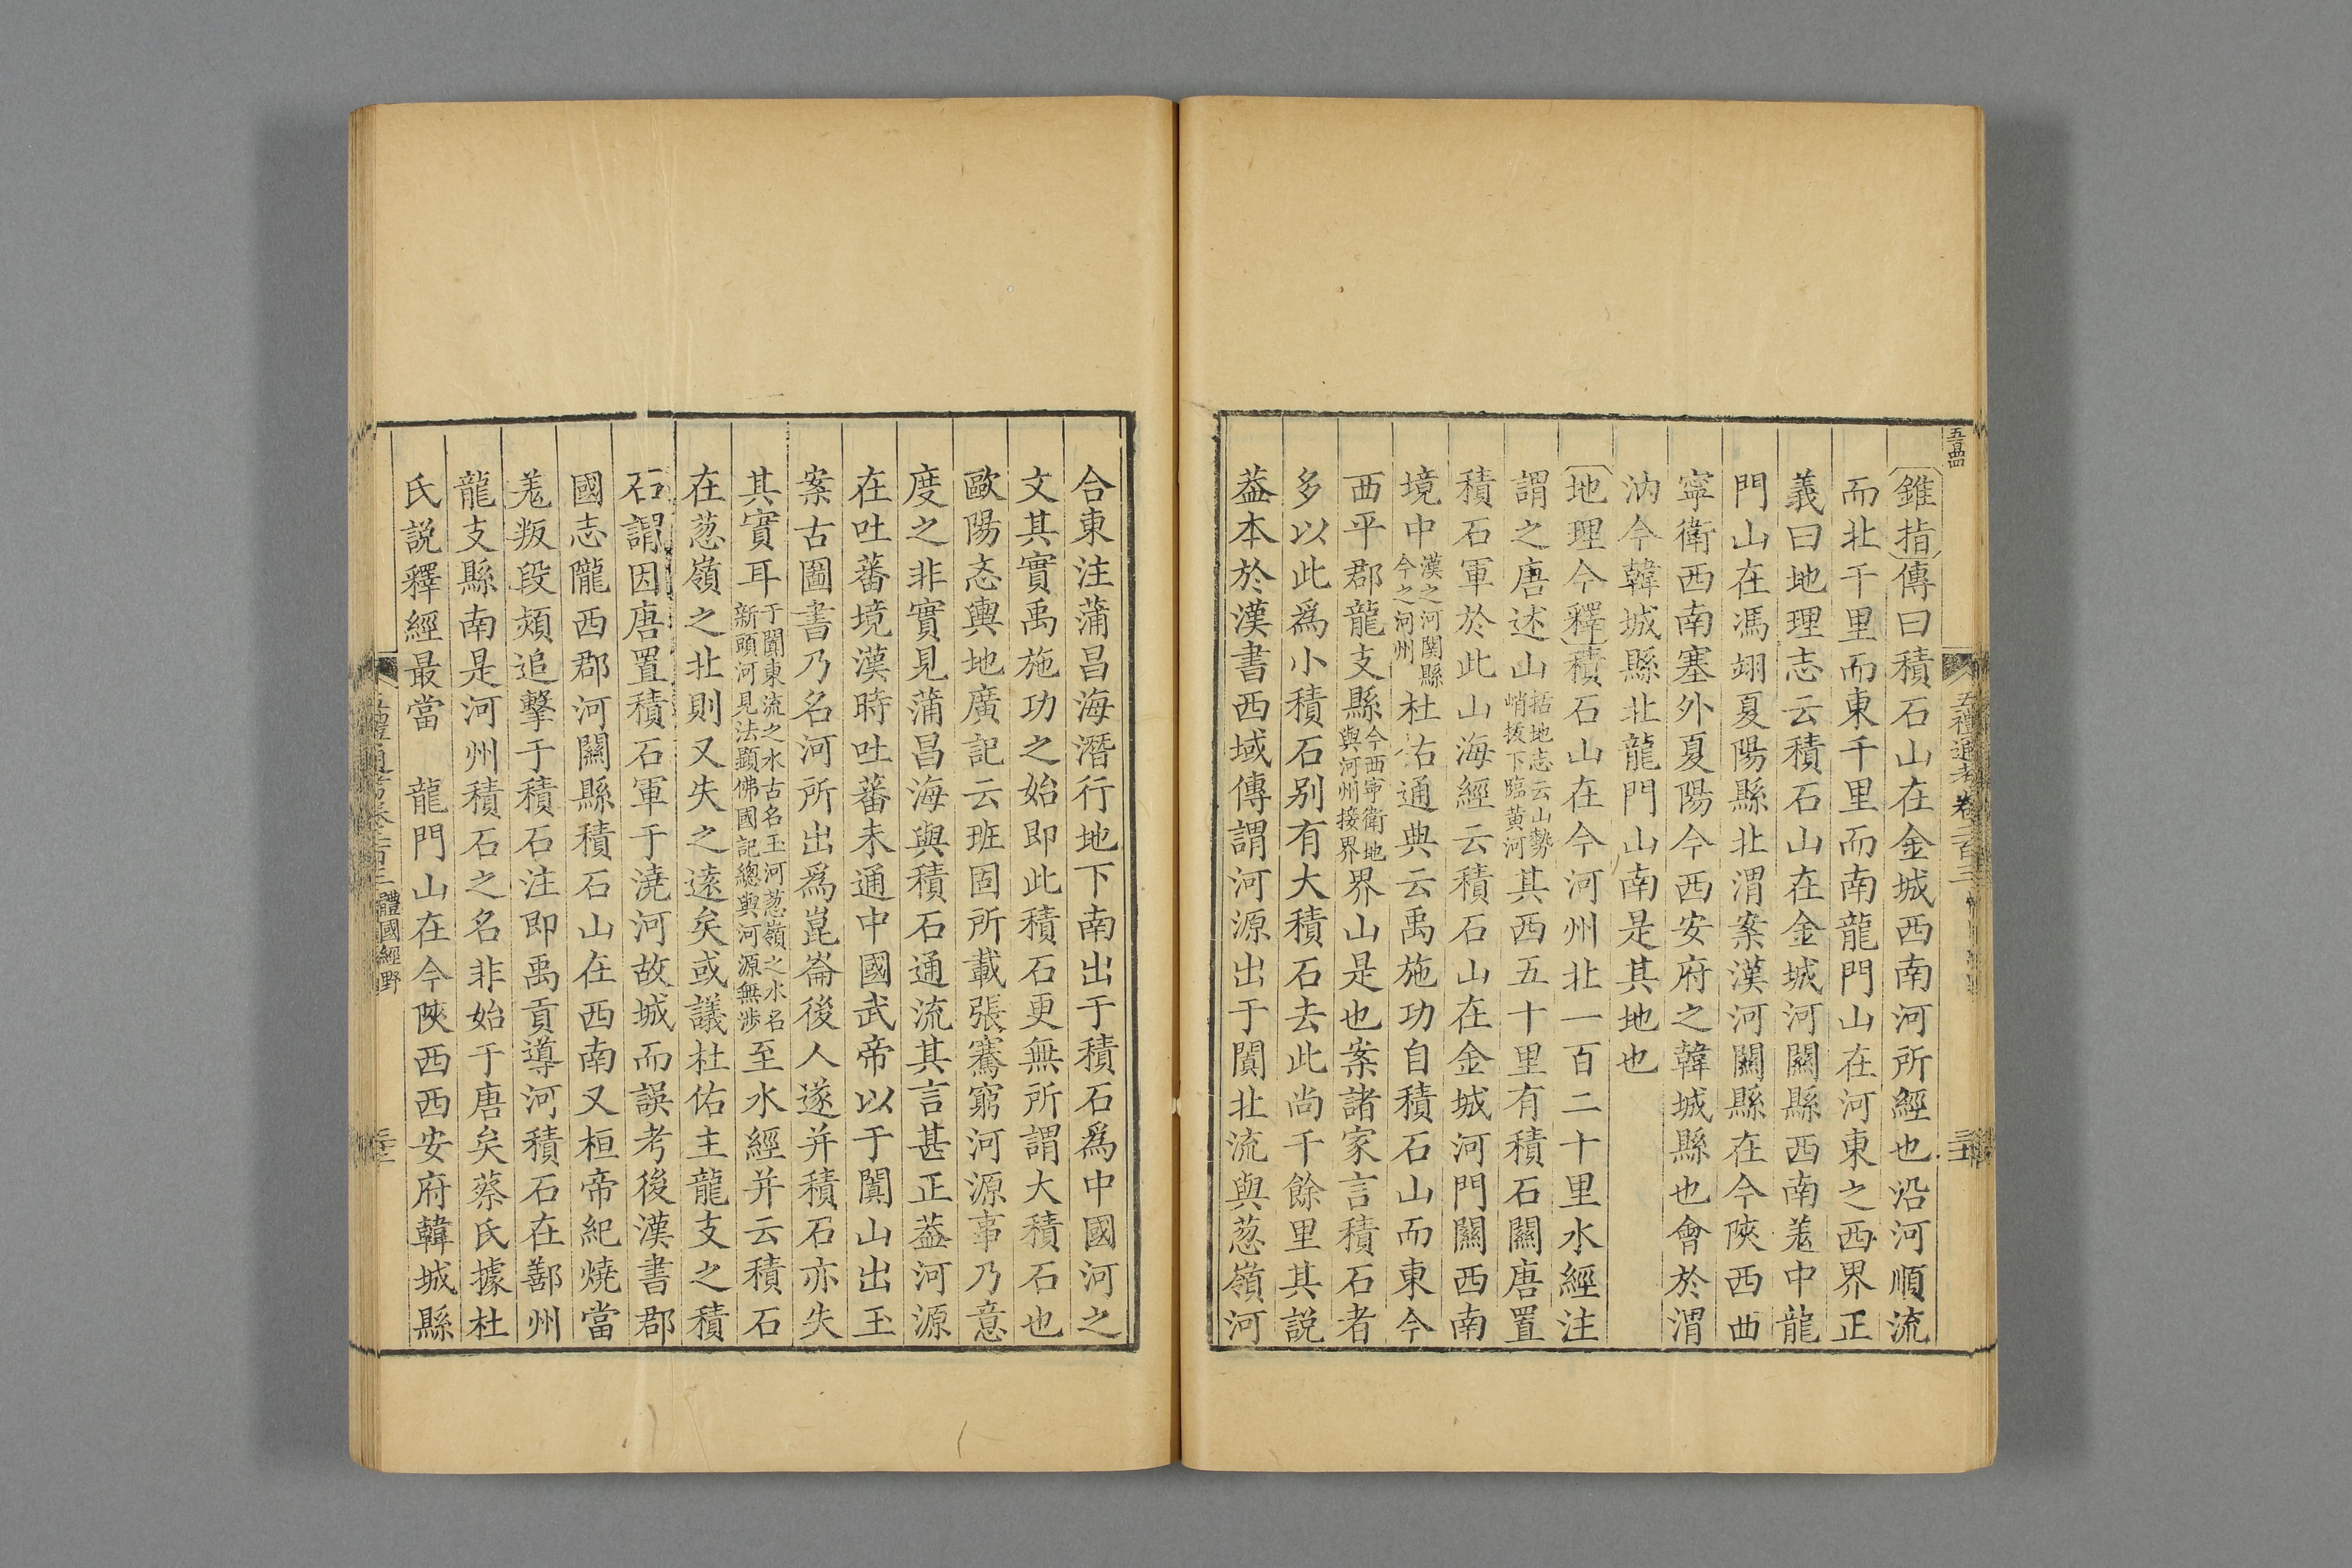 五禮通考 卷二百三
錐指傳曰積石山在金城西南河所經也沿河順流
而北千里而東千里而南龍門山在河東之西界正
義曰地理志云積石山在金城河關縣西南羌中龍
門山在馮翊夏陽縣北渭案漢河關縣在今陝西西
寧衛西南塞外夏陽今西安府之韓城縣也會於渭
汭今韓城縣北龍門山南是其地也
地理今釋積石山在今河州北一百二十里水經注
謂之唐述山括地志云山勢峭拔下臨黄河其西五十里有積石關唐置
積石軍於此山海經云積石山在金城河門關西南
境中漢之河関縣今之河州杜佑通典云禹施功自積石山而東今
西平郡龍支縣今西寧衛地與河州接界界山是也案諸家言積石者
多以此爲小積石别有大積石去此尚千餘里其説
葢本於漢書西域傳謂河源出于闐北流與葱嶺河
合東注蒲昌海潛行地下南出于積石爲中國河之
文其實禹施功之始即此積石更無所謂大積石也
歐陽忞輿地廣記云班固所載張騫窮河源事乃意
度之非實見蒲昌海與積石通流其言甚正葢河源
在吐蕃境漢時吐蕃未通中國武帝以于闐山出玉
案古圖書乃名河所出爲崑崙後人遂并積石亦失
其實耳于闐東流之水古名玉河葱嶺之水名新頭河見法顯佛國記總與河源無渉至水經并云積石
在葱嶺之北則又失之遠矣或議杜佑主龍支之積
石謂因唐置積石軍于澆河故城而誤考後漢書郡
國志隴西郡河關縣積石山在西南又桓帝紀燒當
羌叛段熲追擊于積石注即禹貢導河積石在鄯州
龍支縣南是河州積石之名非始于唐矣蔡氏據杜
氏説釋經最當　龍門山在今陝西西安府韓城縣
體國經野